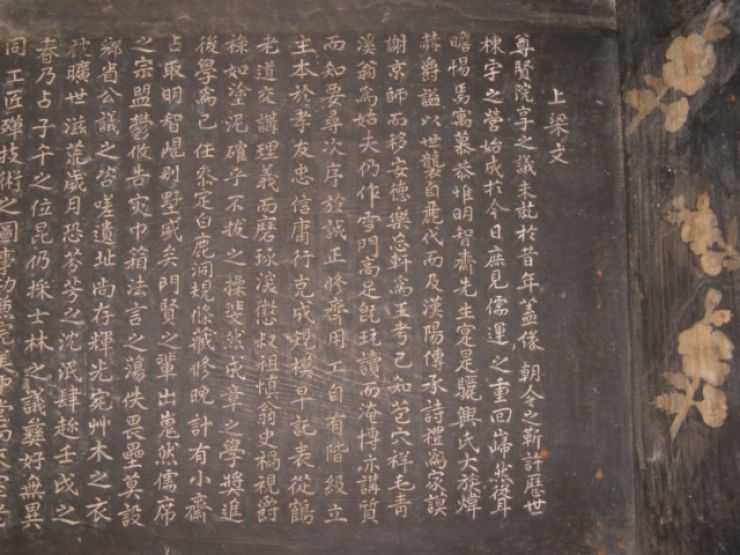 上梁文
尊賢院享之議未訖於昔年蓋緣 朝令之靳許歷世
棟宇之營始成於今日庶見儒運之重回巋然聳
瞻惕焉寓慕恭惟明智齋先生寔是驪興氏大族煒
赫爵諡以世襲自麗代而及漢陽傳承詩禮爲家謨
謝京師而移安德樂忘軒寓王考已知芑穴祥毛靑
溪翁爲姑夫仍作雪門高足旣玩讀而淹博亦講質
而知要尋次序於誠正修齊用工自有階級立
生本於孝友忠信庸行克成規模早記表從鶴
老道交講理義而磨琢深懲叔祖愼翁史禍視爵
祿如塗泥確乎不拔之操斐然成章之學奬進
後學爲己任參定白鹿洞規條藏修晚計有小齋
占取明智規別墅戚矣門賢之輩出嵬然儒席
之宗盟鬱攸告灾巾箱法言之蕩佚畏壘莫設
鄕省公議之咨嗟遺址尙存輝光宛艸木之衣
被曠世滋荒歲月恐芬芳之沈泯肆趂壬戌之
春乃占子午之位昆仍採士林之議彜好無異
同工匠殫技術之圖事功兼完美